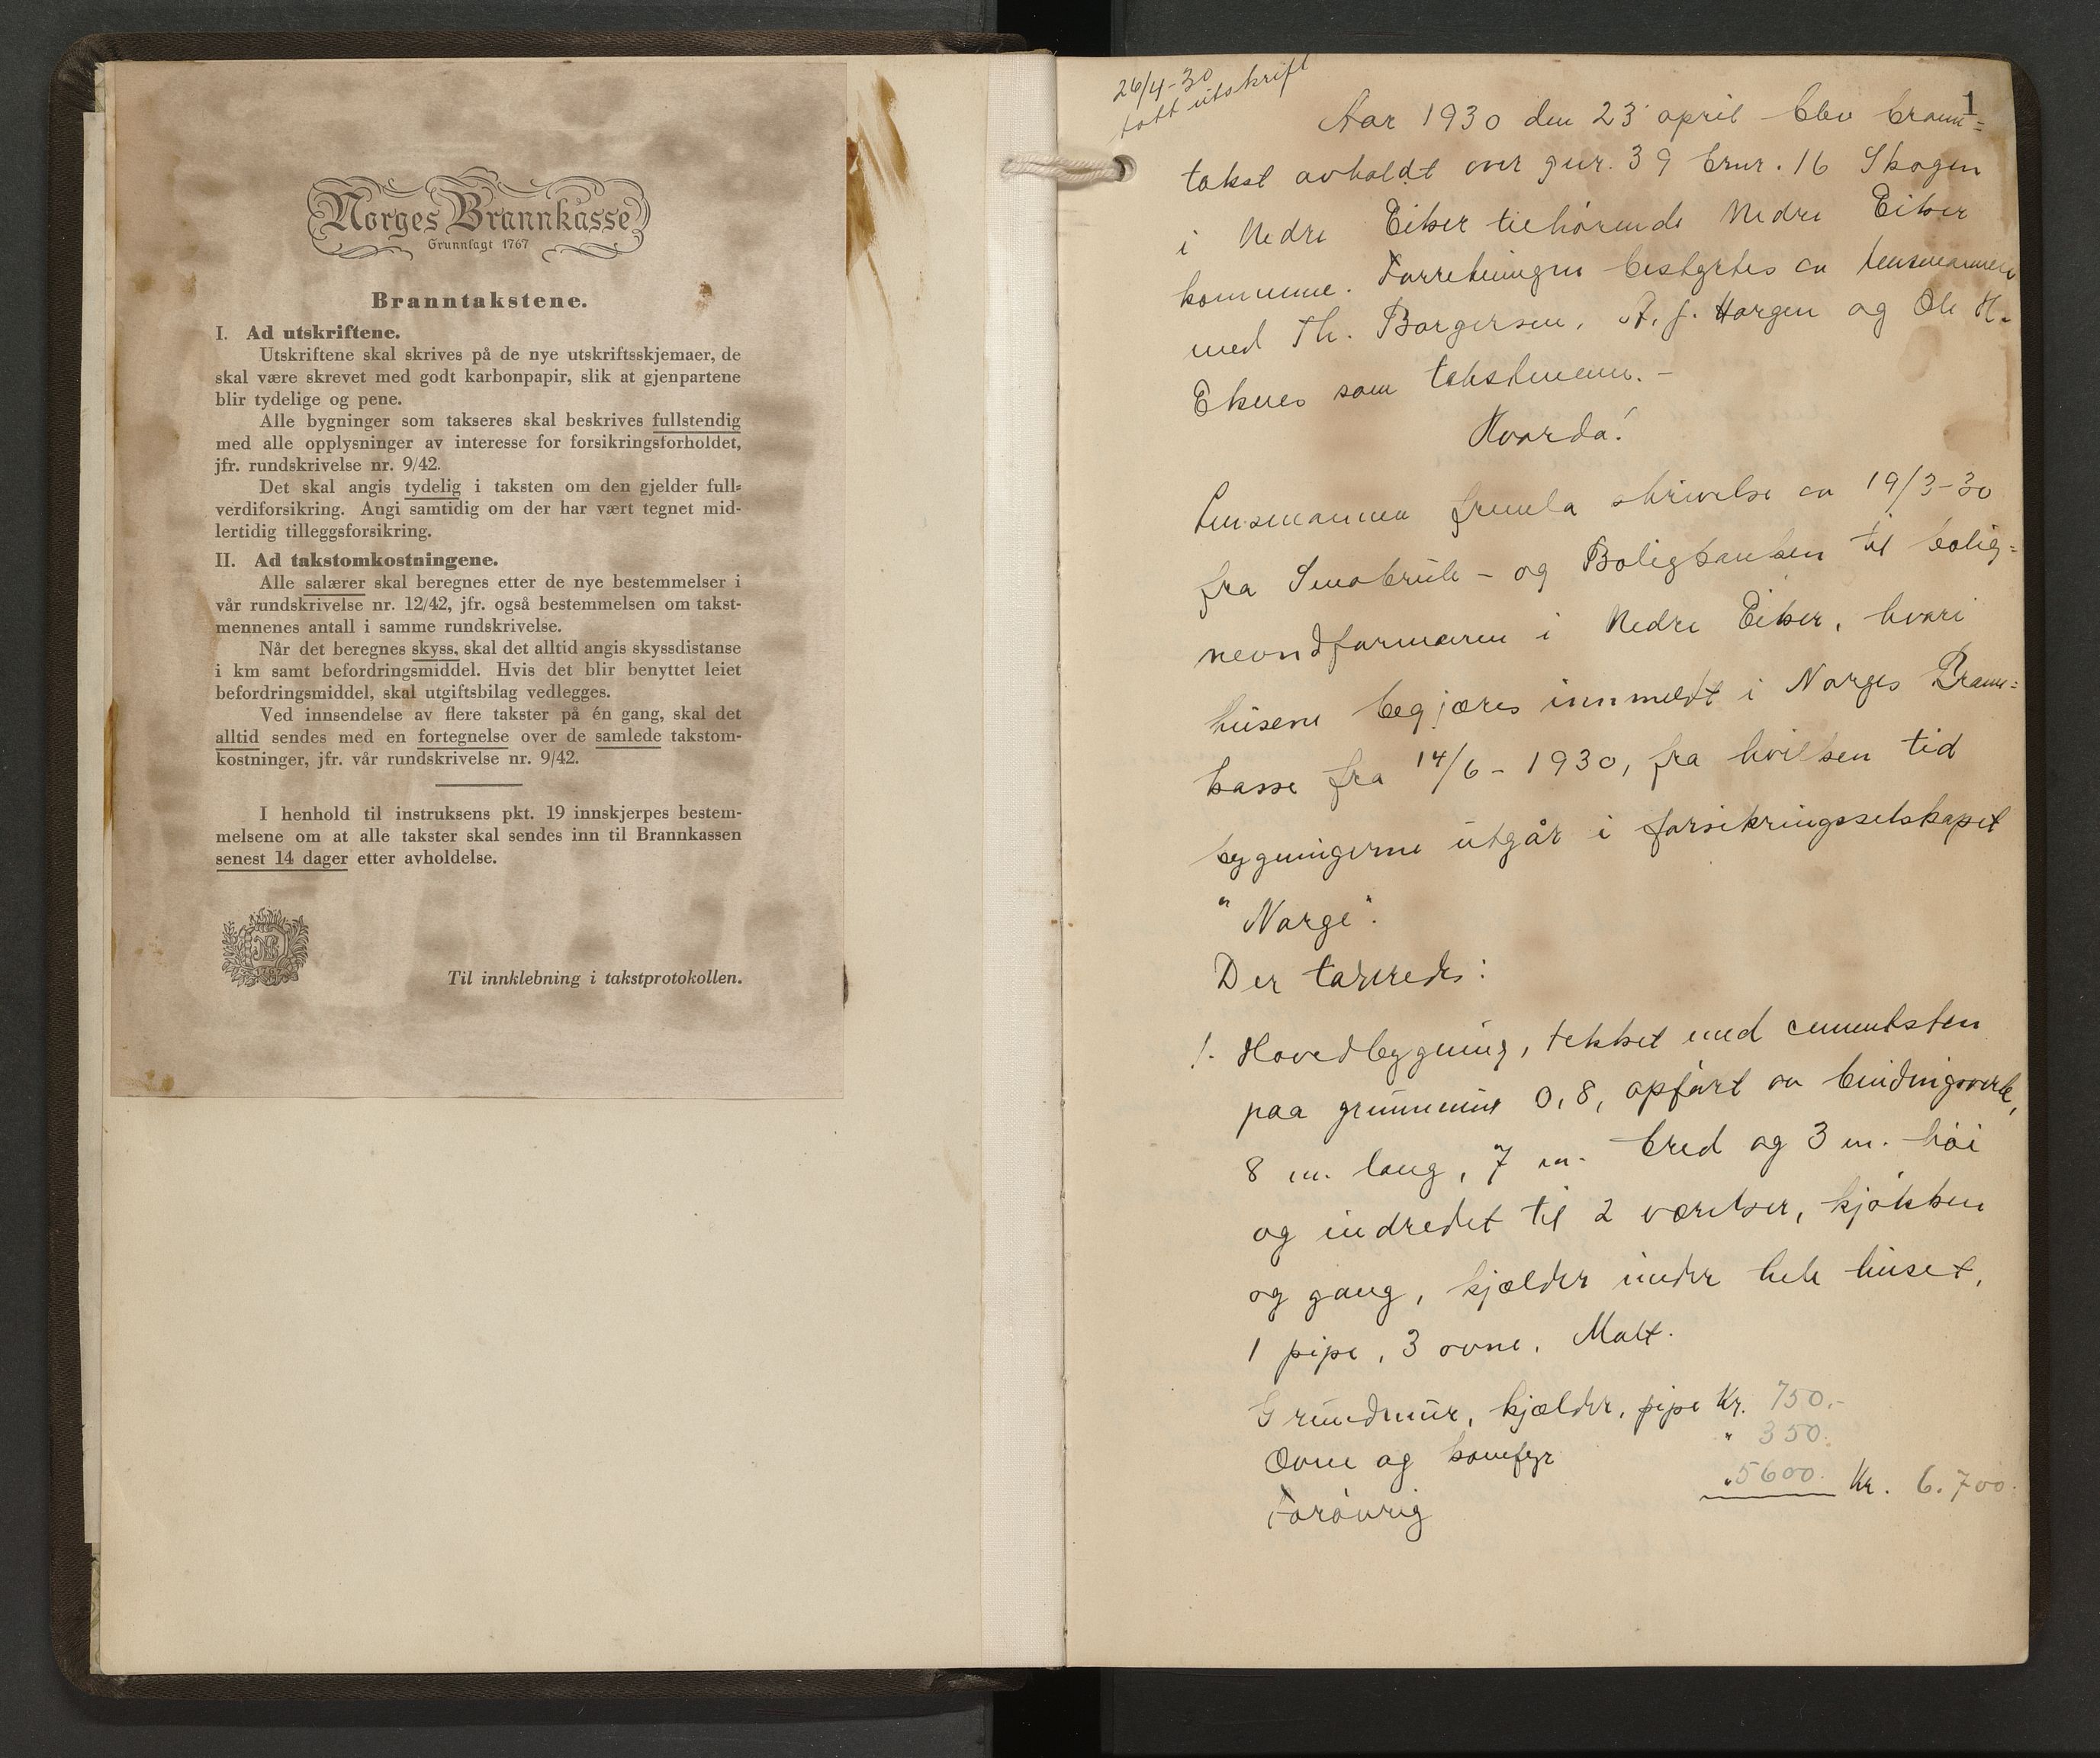 Norges Brannkasse
Grunnlagt 1767
Branntakstene.
I. Ad utskriftene.
Utskriftene skal skrives på de nye utskriftsskjemaer, de
skal være skrevet med godt karbonpapir, slik at gjenpartene
blir tydelige og pene.
Alle bygninger som takseres skal beskrives fullstendig
med alle opplysninger av interesse for forsikringsforholdet,
jfr. rundskrivelse nr. 9/42.
Det skal angis tydelig i taksten om den gjelder full-
verdiforsikring. Angi samtidig om der har vært tegnet mid-
lertidig tilleggsforsikring.
II. Ad takstomkostningene.
Alle salærer skal beregnes etter de nye bestemmelser i
vår rundskrivelse nr. 12/42, jfr. også bestemmelsen om takst-
mennenes antall i samme rundskrivelse.
Når det beregnes skyss, skal det alltid angis skyssdistanse
i km samt befordringsmiddel. Hvis det blir benyttet leiet
befordringsmiddel, skal utgiftsbilag vedlegges.
Ved innsendelse av flere takster på én gang, skal det
alltid sendes med en fortegnelse over de samlede takstom-
kostninger, jfr. vår rundskrivelse nr. 9/42.
I henhold til instruksens pkt. 19 innskjerpes bestem-
melsene om at alle takster skal sendes inn til Brannkassen
senest 14 dager etter avholdelse.
Til innklebning i takstprotokollen.
26/4-30
tatt utskrift
1
Aar 1930 den 23 april blev brann=
takst avholdt over gnr. 39 brnr. 16 Skogen
i Nedre Eiker tilhørende Nedre Eiker
kommune. Forretningen bestyrtes av lensmannen
med Th. Borgersen, A. J. Horgen og Ole H.
Eknes som takstmenn. –
Hvorda!
Lensmannen fremla skrivelse av 19/3-30
fra Smabruk- og Boligbanken til bolig=
nevndformannen i Nedre Eiker, hvori
husene begjæres innmeldt i Norges Brann=
kasse fra 14/6 - 1930, fra hvilken tid
bygningerne utgår i forsikringsselskapet
"Norge".
Der taxeredes:
1. Hovedbygning, tekket med cementsten
paa grunnmur 0,8, opført av bindingsverk,
8 m. lang, 7 m. bred og 3 m. høi
og indredet til 2 værelser, kjøkken
og gang, kjælder under hele huset,
1 pipe, 3 ovne. Malt.
Grundmur, kjælder, pipe Kr. 750.-
Ovne og komfyr " 350.
Forøvrig " 5600. Kr. 6.700.